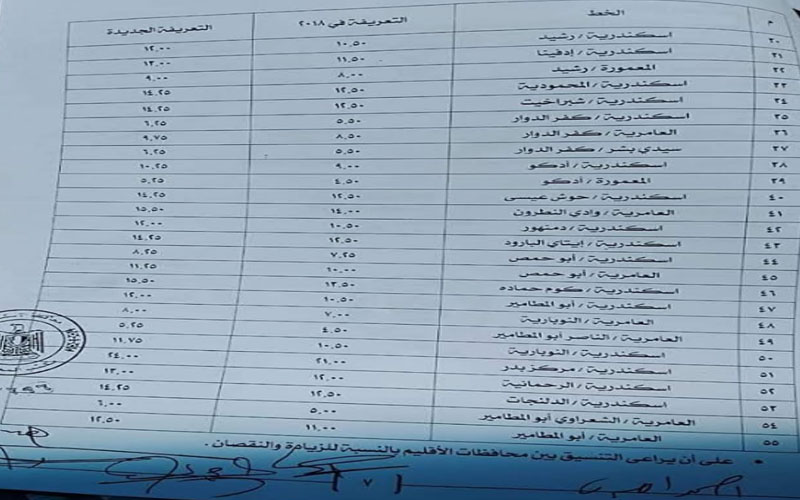 م الخط التعريفة في ٢٠١٨ التعريفة الجديدة
٣٠ اسكندرية / رشيد ١٠,٥٠ ١٢,٠٠
٣١ اسكندرية / إدفينا ١١,٥٠ ١٣,٠٠
٣٢ المعمورة / رشيد ٨,٠٠ ٩,٠٠
٣٣ اسكندرية / المحمودية ١٢,٥٠ ١٤,٢٥
٣٤ اسكندرية / شبراخيت ١٢,٥٠ ١٤,٢٥
٣٥ اسكندرية / كفر الدوار ٥,٥٠ ٦,٢٥
٣٦ العامرية / كفر الدوار ٨,٥٠ ٩,٧٥
٣٧ سيدي بشر / كفر الدوار ٥,٥٠ ٦,٢٥
٣٨ اسكندرية / أدكو ٩,٠٠ ١٠,٢٥
٣٩ المعمورة / أدكو ٤,٥٠ ٥,٢٥
٤٠ اسكندرية / حوش عيسى ١٢,٥٠ ١٤,٢٥
٤١ العامرية / وادي النطرون ١٤,٠٠ ١٥,٥٠
٤٢ اسكندرية / دمنهور ١٠,٥٠ ١٢,٠٠
٤٣ اسكندرية / إيتاي البارود ١٢,٥٠ ١٤,٢٥
٤٤ اسكندرية / أبو حمص ٧,٢٥ ٨,٢٥
٤٥ العامرية / أبو حمص ١٠,٠٠ ١١,٢٥
٤٦ اسكندرية / كوم حماده ١٣,٥٠ ١٥,٥٠
٤٧ اسكندرية / أبو المطامير ١٠,٥٠ ١٢,٠٠
٤٨ العامرية / النوبارية ٧,٠٠ ٨,٠٠
٤٩ العامرية / الناصر أبو المطامير ٤,٥٠ ٥,٢٥
٥٠ اسكندرية / النوبارية ١٠,٥٠ ١١,٧٥
٥١ اسكندرية / مركز بدر ٢١,٠٠ ٢٤,٠٠
٥٢ اسكندرية / الرحمانية ١٢,٠٠ ١٣,٠٠
٥٣ اسكندرية / الدلنجات ١٢,٥٠ ١٤,٢٥
٥٤ العامرية / الشعراوي أبو المطامير ٥,٠٠ ٦,٠٠
٥٥ العامرية / أبو المطامير ١١,٠٠ ١٢,٥٠
• على أن يراعى التنسيق بين محافظات الأقليم بالنسبة للزيادة والنقصان .
[ ٧ ]